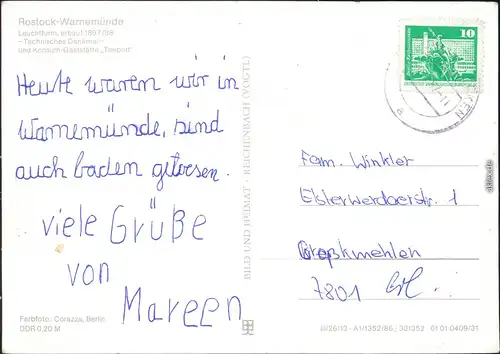 Rostock-Warnemünde
Leuchtturm, erbaut 1897/98
– Technisches Denkmal –
und Konsum-Gaststätte „Teepott“
Heute waren wir in
Warnemünde, sind
auch baden gewesen.
viele Grüße
von
Mareen
Farbfoto: Corazza, Berlin
DDR 0,20 M
BILD UND HEIMAT · REICHENBACH (VOGTL)
10
Fam. Winkler
Elsterwerdaerstr. 1
Großkmehlen
7801
III/26/13 · A1/1352/86 331352 01 01 0409/31